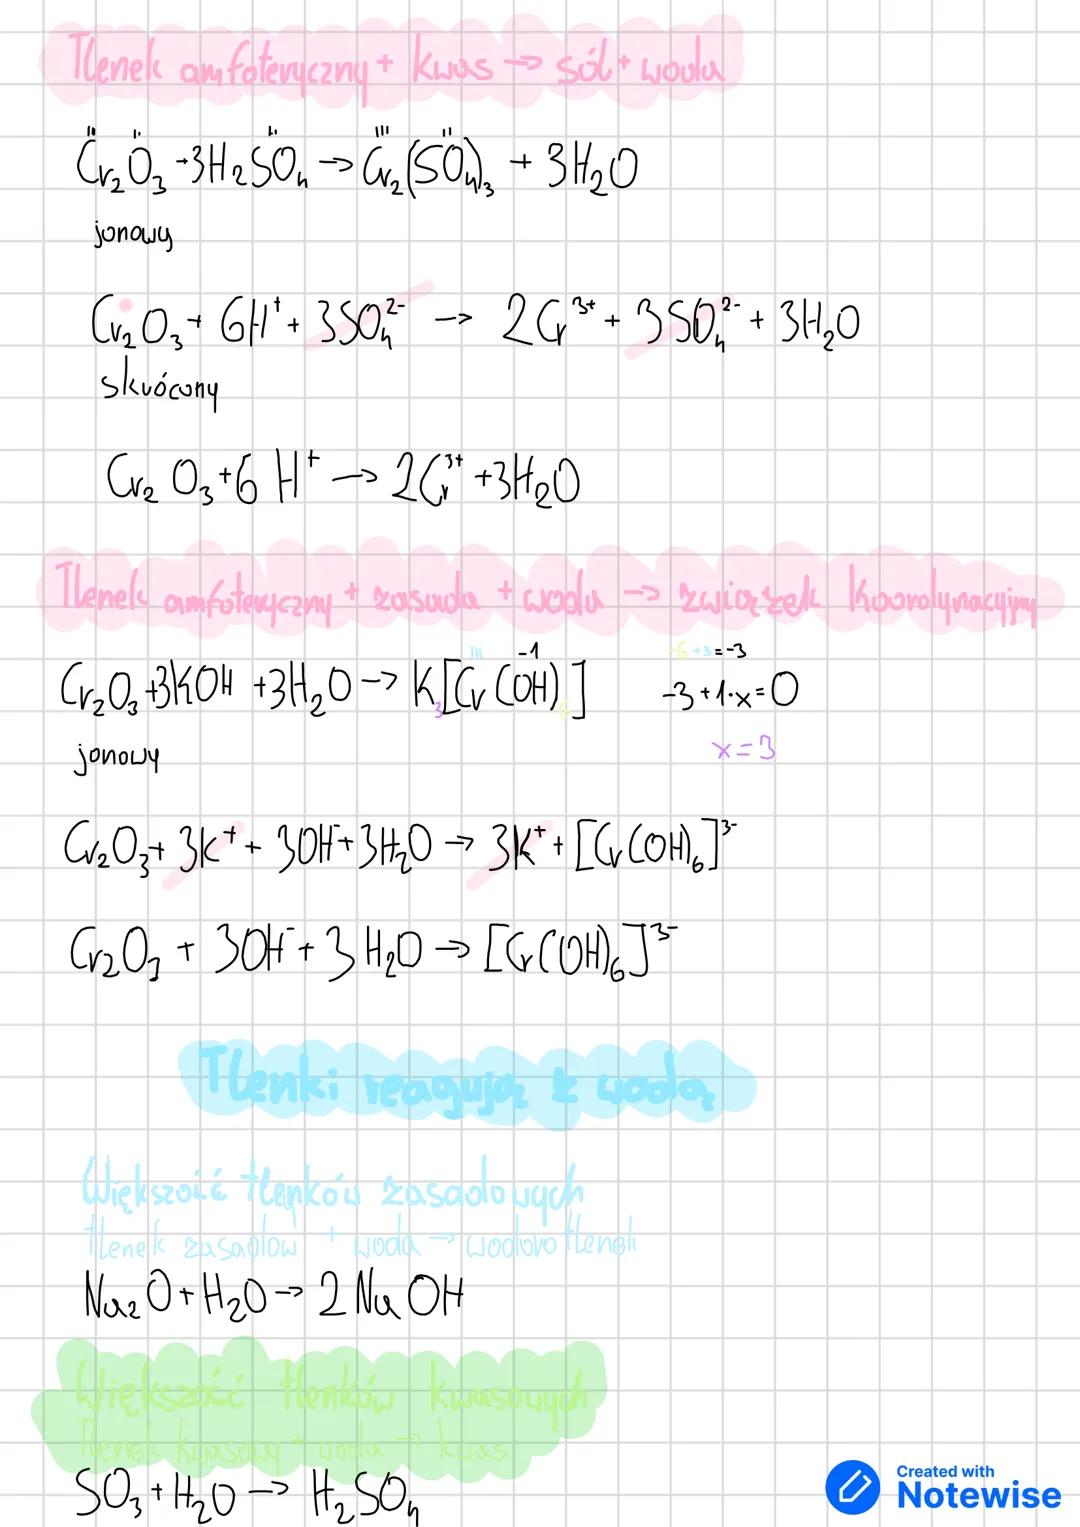 Tlenek amfoteryczny + kwas → sól + woda
III II II III II
Cr₂O₃ + 3H₂SO₄ → Cr₂(SO₄)₃ + 3H₂O
jonowy
Cr₂O₃ + 6H⁺ + 3SO₄²⁻ → 2Cr³⁺ + 3SO₄²⁻ + 3H₂O
skrócony
Cr₂O₃ + 6H⁺ → 2Cr³⁺ + 3H₂O
Tlenek amfoteryczny + zasada + woda → związek koordynacyjny
III -1 -6+3=-3
Cr₂O₃ + 3KOH + 3H₂O → K₃[Cr(OH)₆] -3+1·x=0
jonowy x=3
Cr₂O₃ + 3K⁺ + 3OH⁻ + 3H₂O → 3K⁺ + [Cr(OH)₆]³⁻
Cr₂O₃ + 3OH⁻ + 3H₂O → [Cr(OH)₆]³⁻
Tlenki reagują z wodą
Większość tlenków zasadowych
tlenek zasadow + woda → wodorotlenek
Na₂O + H₂O → 2NaOH
Większość tlenków kwasowych
Tlenek kwasowy + woda → kwas
SO₃ + H₂O → H₂SO₄
Created with
Notewise